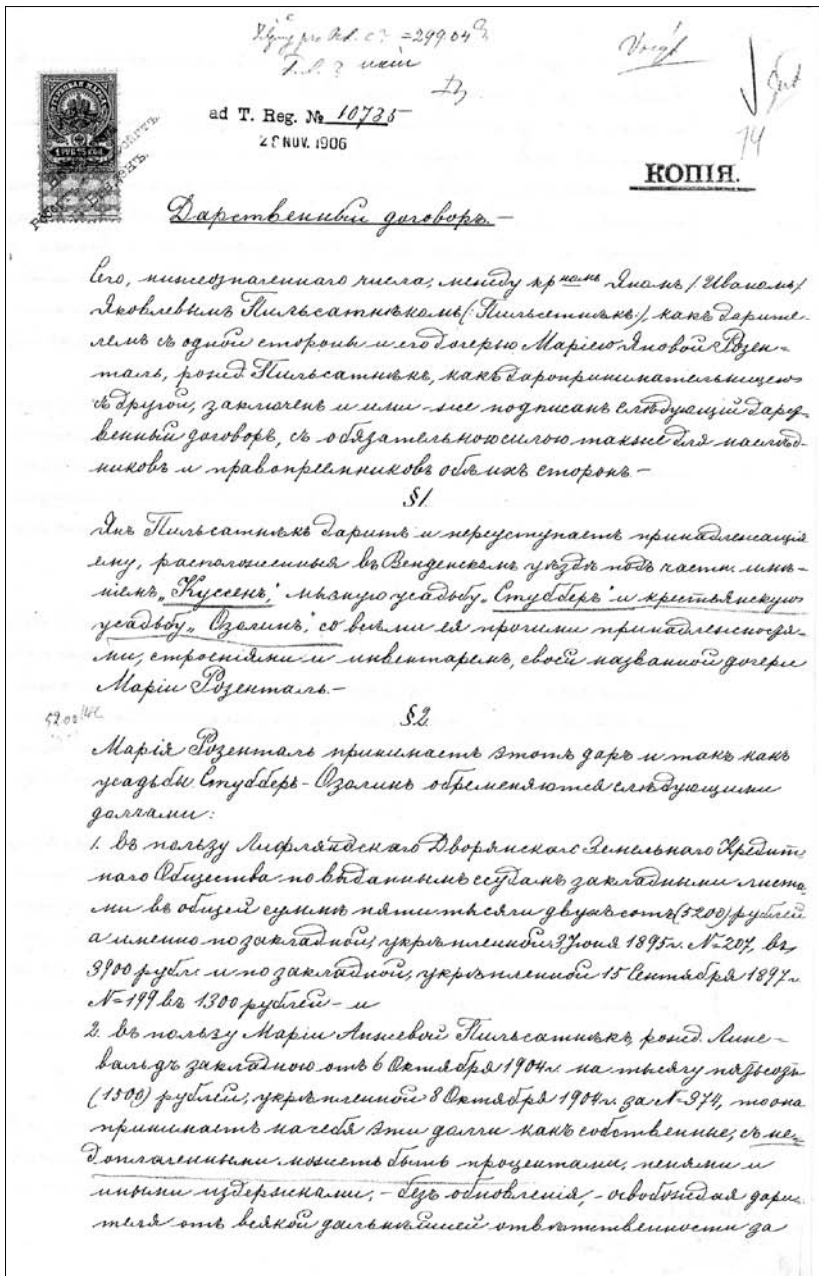 =299.04
Voigt
ad T. Reg. № 10735
28 NOV. 1906
14
КОПІЯ.
Дарственный договоръ.—
Сего, нижеозначеннаго числа, между кр-номъ Яномъ /Иваномъ/
Яковлевымъ Пильсатнѣкомъ (:Пильсетнѣкъ:), какъ дарите-
лемъ съ одной стороны и его дочерью Маріею Яновой Розен-
таль, рожд. Пильсатнѣкъ, какъ даропринимательницею
съ другой, заключенъ и ими-же подписанъ слѣдующій дарст-
венный договоръ, съ обязательною силою также для наслѣд-
никовъ и правопреемниковъ обѣихъ сторонъ.—
§1.
Янъ Пильсатнѣкъ даритъ и переуступаетъ принадлежащія
ему, расположенныя въ Венденскомъ уѣздѣ подъ частн. имѣ-
ніемъ „Куссенъ,“ мызную усадьбу „Стубберъ“ и крестьянскую
усадьбу „Озолинъ,“ со всѣми ея прочими принадлежностя-
ми, строеніями и инвентаремъ, своей названной дочери
Маріи Розенталь.—
§2.
Марія Розенталь принимаетъ этотъ даръ и такъ какъ
усадьбы Стубберъ-Озолинъ обременяются слѣдующими
долгами:
1. въ пользу Лифляндскаго Дворянскаго Земельнаго Кредит-
наго Общества по выданнымъ ссудамъ закладными листа-
ми въ общей суммѣ пяти тысячи двухъ сотъ (5200) рублей
а именно по закладной, укрѣпленной 3 Іюня 1895 г. №207, въ
3900 рубл. и по закладной, укрѣпленной 15 Сентября 1897 г.
№199 въ 1300 рублей — и
2. въ пользу Маріи Анжевой Пильсатнѣкъ, рожд. Лине-
вальдъ закладною отъ 6 Октября 1904 г. на тысячу пятьсотъ
(1500) рублей, укрѣпленной 8 Октября 1904 г. за №374, то она
принимаетъ на себя эти долги какъ собственные, съ не-
доплаченными, можетъ быть процентами, пенями и
иными издержками, — безъ обновленія, — освобождая дари-
теля отъ всякой дальнѣйшей отвѣтственности за